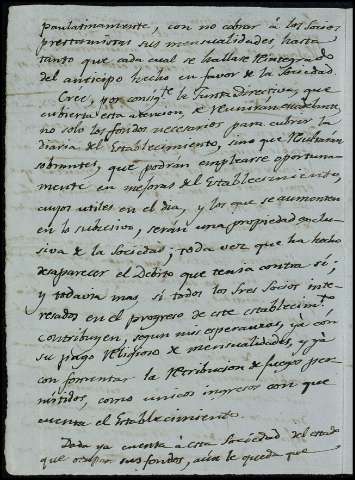 paulatinamente, con no cobrar á los Socios
prestamistas sus mensualidades, hasta
tanto que cada cual se hallase reintegrado
del anticipo hecho en favor de la Sociedad
Cree, por consigte la Junta directiva, que
cubierta esta atencion, se reuniran en adelante,
no solo los fondos necesarios para cubrir la
diaria del Establecimiento, sino que resultarán
sobrantes, que podrán emplearse oportuna-
mente en mejoras del Establecimiento,
cuyos utiles en el dia, y los que se aumenten
en lo subcesivo, serán una propiedad esclu-
siva de la Sociedad; toda vez que ha hecho
desaparecer el Debito que tenia contra si;
y todavia mas, si todos los Sres Socios inte-
resados en el progreso de este establecimto
contribuyen, segun mis esperanzas, yá con
su pago religioso de mensualidades, y yá
con fomentar la retribucion de juegos per-
mitidos, como unicos ingresos con que
cuenta el Establecimiento.
Dada ya cuenta á esta Sociedad del estado
que sus fondos, aun le queda que